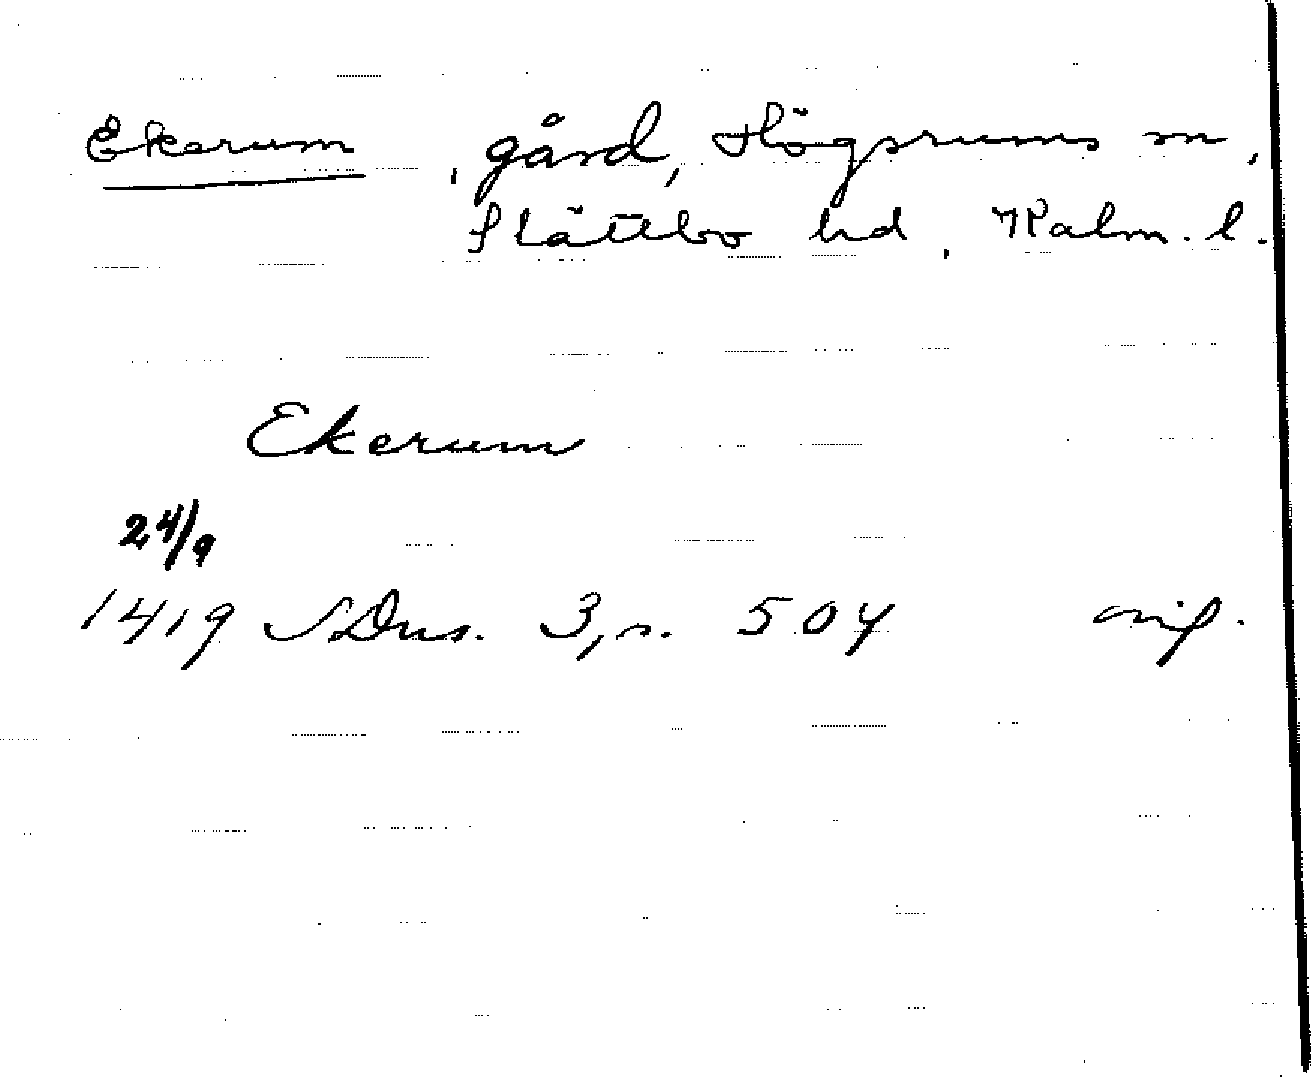 Ekerum, gård, Högsrums sn,
Slättbo hd, Kalm. l.
Ekerum
24/9
1419 SDns. 3, s. 504 avif.